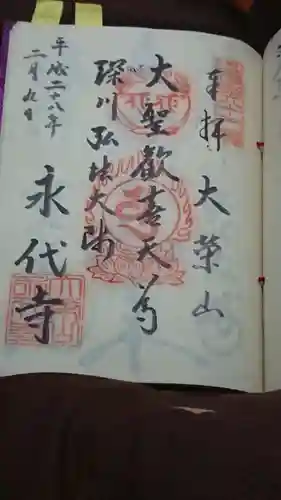 奉拝 大榮山
大聖歓喜天
深川 弘法大師
永代寺
平成二十八年
二月九日